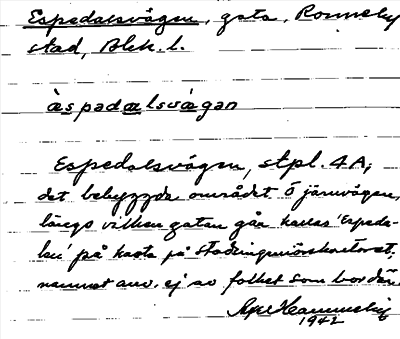 Espedalsvägen, gata, Ronneby
stad, Blek. l.
àspadalsvægan
Espedalsvägen, stpl. 4A;
det bebyggda området ö järnvägen,
längs vilken gatan går kallas 'Espeda-
len' på karta på stadsingeniörskontoret;
namnet anv. ej av folket som bor där.
1942